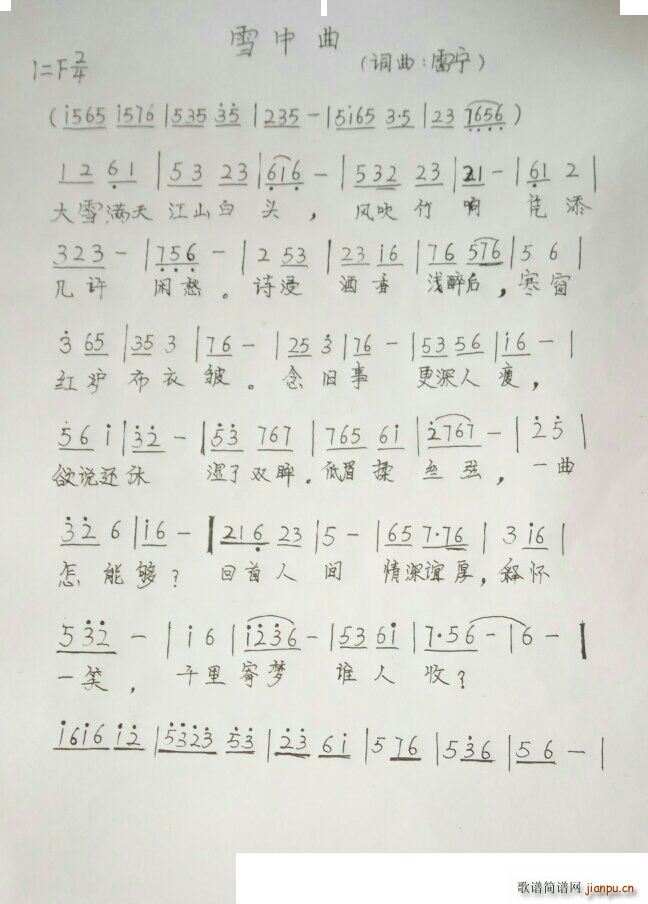 雪中曲
1=F 2/4
(词曲:雷宁)
(i565 i576 | 535 35 | 235 - | 5i65 3·5 | 23 7656)
12 61 | 53 23 | 616 - | 532 23 | 21 - | 61 2 |
大雪满天江山白头, 风吹竹响 凭添
323 - | 756 - | 2 53 | 23 i6 | 76 576 | 5 6 |
几许 闲愁。诗漫 酒香 浅醉后,寒窗
3 65 | 35 3 | 76 - | 25 3 | 76 - | 53 56 | i6 - |
红炉 布衣 皱。念旧事 更深人瘦,
56 i | 32 - | 53 767 | 765 6i | 2767 - | 2 5 |
欲说还休 湿了双眸。低眉揉 丝弦,一曲
32 6 | i6 - | 216 23 | 5 - | 65 7·76 | 3 i6 |
怎能够? 回首人 间 情深谊厚,释怀
532 - | i 6 | i236 - | 53 6i | 7·56 - | 6 - |
一笑, 千里寄梦 谁人收?
i6i6 i2 | 5323 53 | 23 6i | 5 76 | 5 36 | 56 - |
歌谱简谱网 jianpu.cn